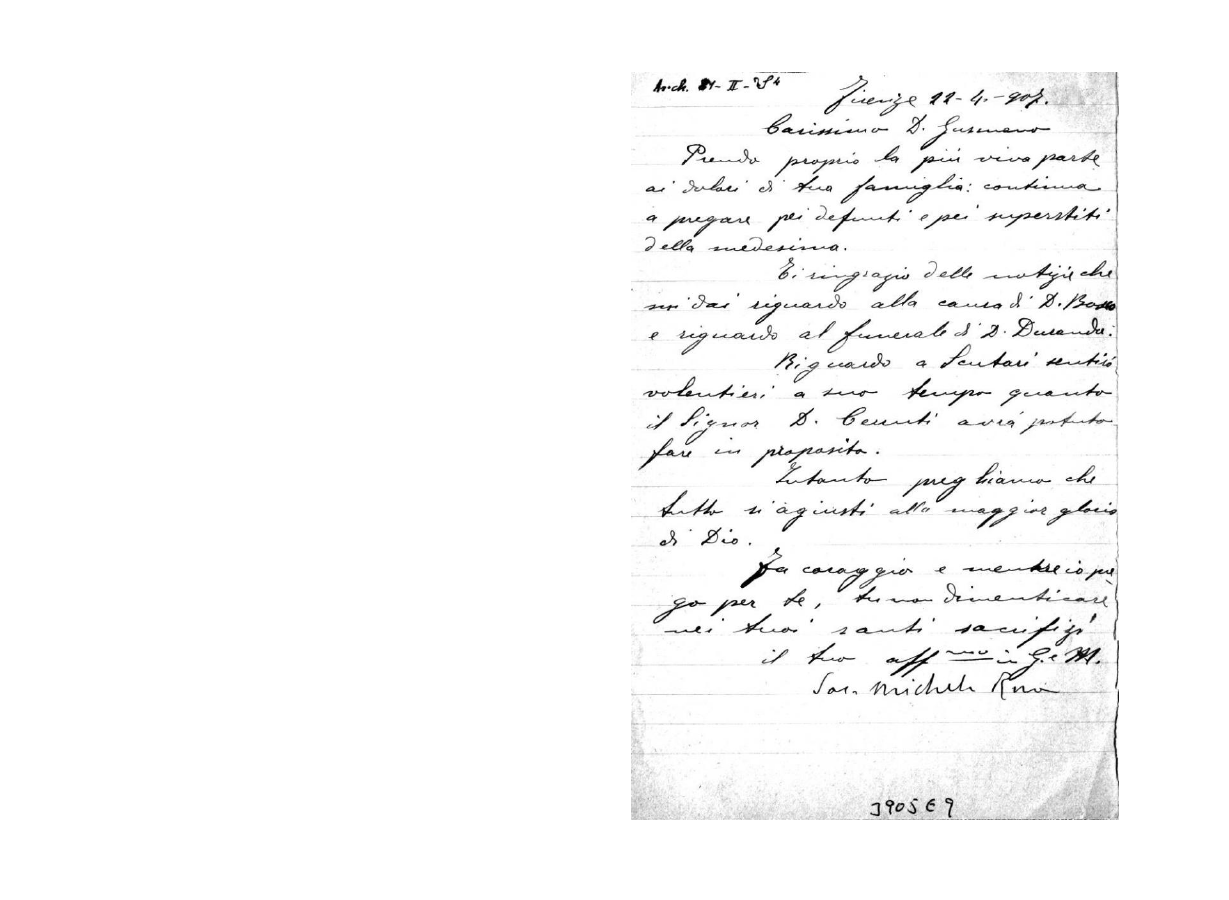 Firenze 22-4.-907.
Carissimo D. Gusmano
Prendo proprio la più viva parte
ai dolori di tua famiglia: continua
a pregare pei defunti e pei superstiti
della medesima.
Ti ringrazio delle notizie che
mi dai riguardo alla causa di D. Bosco
e riguardo al funerale di D. Durando.
Riguardo a Scutari sentirò
volentieri a suo tempo quanto
il Signor D. Cerruti avrà potuto
fare in proposito.
Intanto preghiamo che
tutto si agiusti alla maggior gloria
di Dio.
Fa coraggio e mentre io pre
go per te, tu non dimenticare
nei tuoi santi sacrifizi
il tuo aff mo in G. e M.
Sac. Michele Rua
3905 E 9